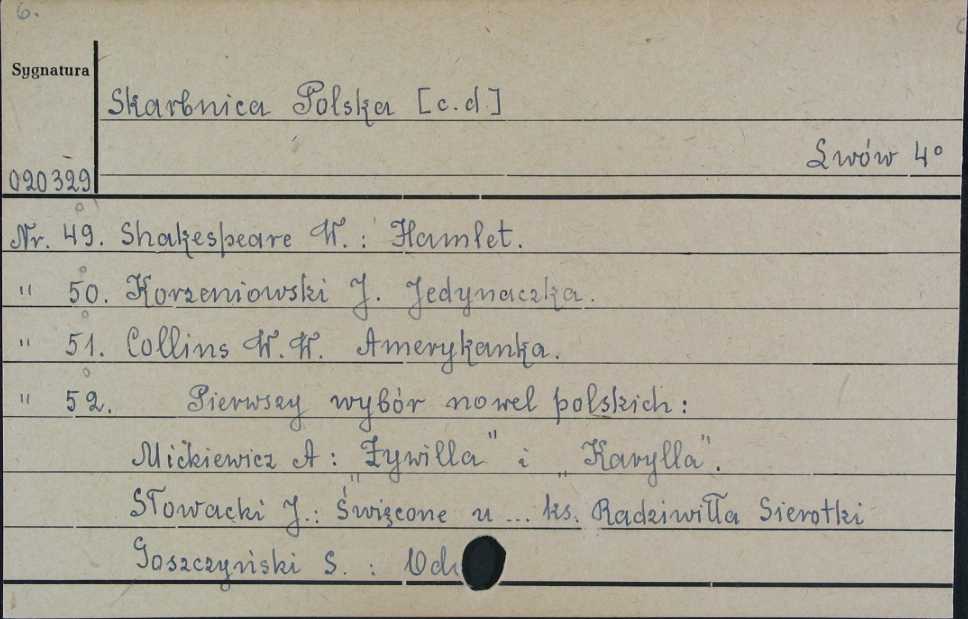 6.
Sygnatura
Skarbnica Polska [c.d.]
Lwów 4°
020329
Nr. 49. Shakespeare W. : Hamlet.
" 50. Korzeniowski J. Jedynaczka.
" 51. Collins W. W. Amerykanka.
" 52. Pierwszy wybór nowel polskich :
Mickiewicz A : "Żywilla" i „Karylla".
Słowacki J.: Święcone u ... ks. Radziwiłła Sierotki
Goszczyński S. :